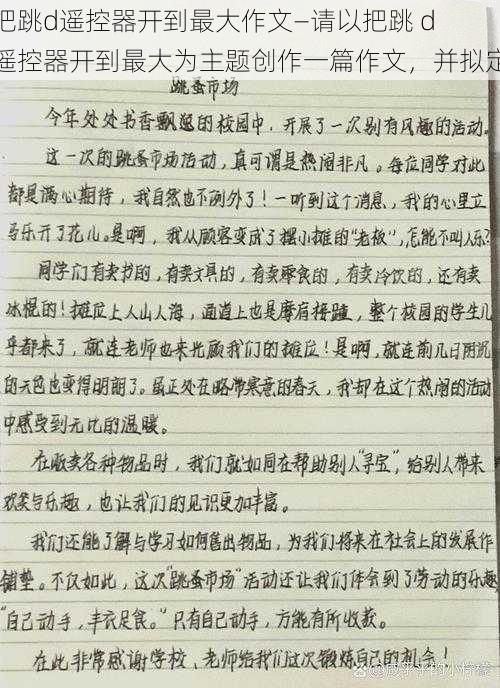 把跳d遥控器开到最大作文–请以把跳 d
遥控器开到最大为主题创作一篇作文，并拟定
跳蚤市场
今年处处书香飘逸的校园中，开展了一次别有风趣的活动。
这一次的跳蚤市场活动，真可谓是热闹非凡。每位同学对此
都是满心期待，我自然也不例外了！一听到这个消息，我的心里立
马乐开了花儿。是啊，我从顾客变成了摆小摊的“老板”，怎能不叫人乐？
同学们有卖书的，有卖文具的，有卖零食的，有卖冷饮的，还有卖
冰棍的！摊位上人山人海，通道上也是摩肩接踵，整个校园的学生几
乎都来了，就连老师也来光顾我们的摊位！是啊，就连前几日阴沉
的天色也变得明朗了。虽正处在略带寒意的春天，我却在这个热闹的活动
中感受到无比的温暖。
在贩卖各种物品时，我们就如同在帮助别人“寻宝”，给别人带来
欢笑与乐趣，也让我们的见识更加丰富。
我们还能了解与学习如何售出物品，为我们将来在社会上的发展作
铺垫。不仅如此，这次“跳蚤市场”活动还让我们体会到了劳动的乐趣
“自己动手，丰衣足食。”只有自己动手，方能有所收获。
在此非常感谢学校、老师给我们这次锻炼自己的机会！